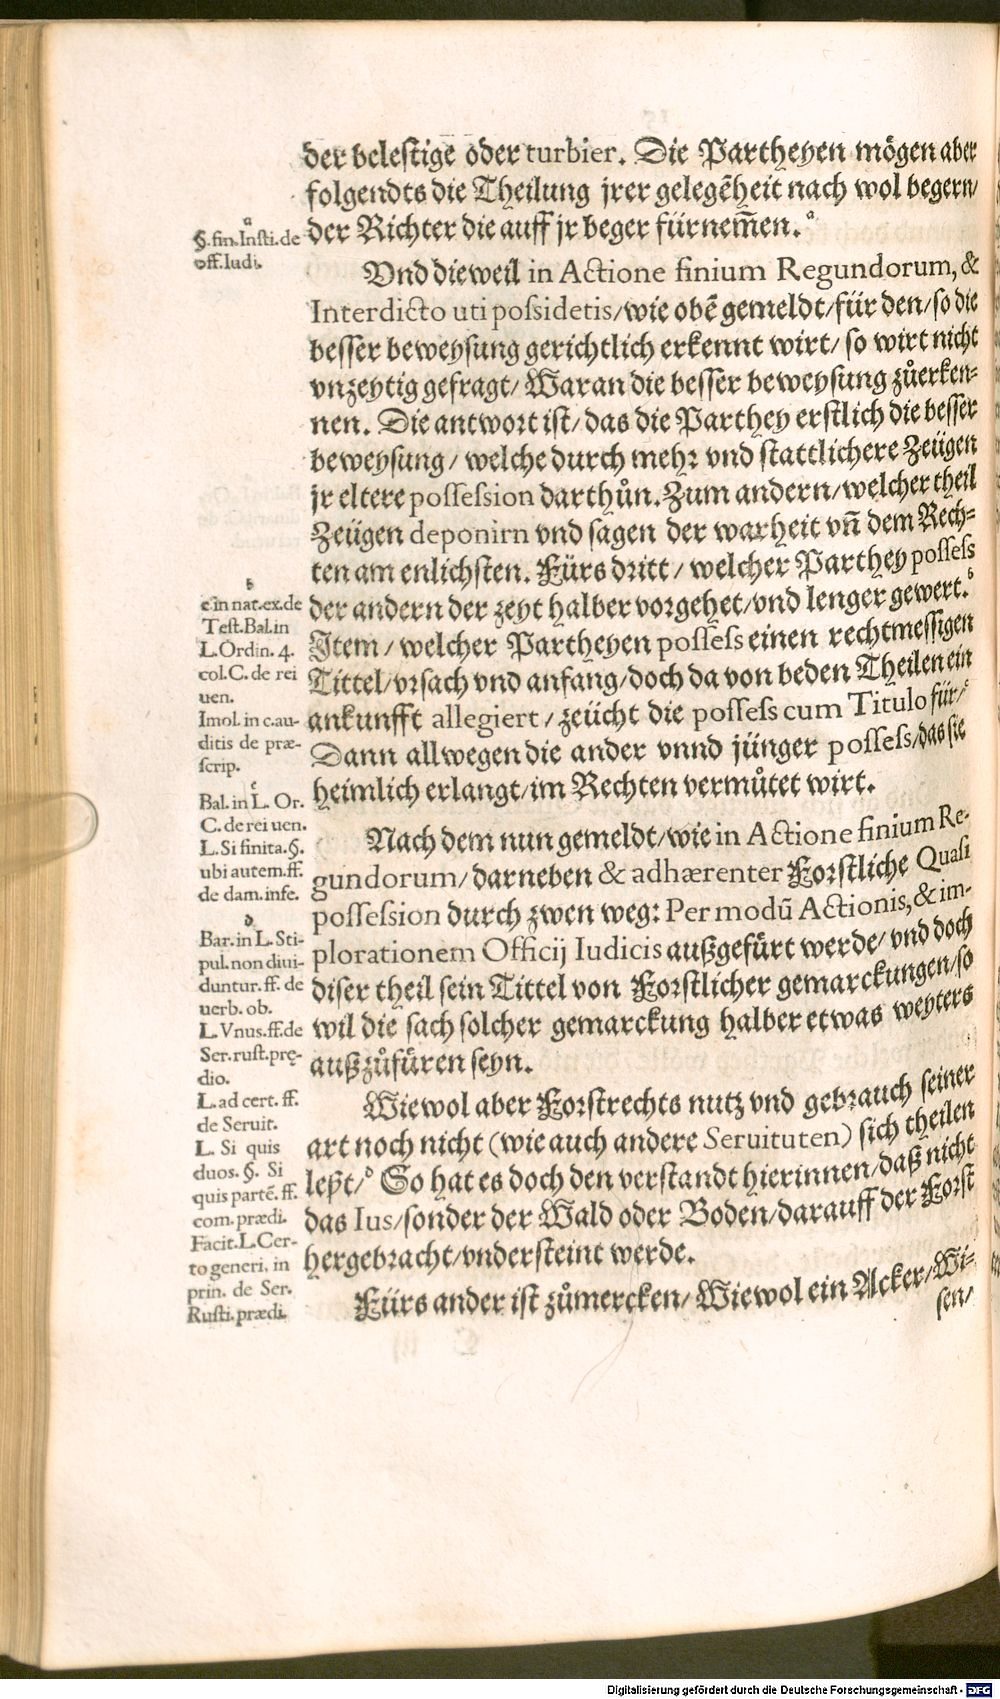 der belestige oder turbier. Die Partheyen mögen aber
folgendts die Theilung jrer gelegẽheit nach wol begern/
der Richter die auff jr beger fürnem̃en.ᵃ
Vnd dieweil in Actione finium Regundorum, &
Interdicto uti possidetis/wie obẽ gemeldt/für den/so die
besser beweysung gerichtlich erkennt wirt/ so wirt nicht
vnzeytig gefragt/ Waran die besser beweysung zůerken-
nen. Die antwort ist/ das die Parthey erstlich die besser
beweysung/ welche durch mehr vnd stattlichere Zeügen
jr eltere possession darthůn. Zum andern/welcher theil
Zeügen deponirn vnd sagen der warheit vñ dem Rech-
ten am enlichsten. Fürs dritt/ welcher Parthey possess
der andern der zeyt halber vorgehet/vnd lenger gewert.ᵇ
Item/ welcher Partheyen possess einen rechtmessigen
Tittel/vrsach vnd anfang/doch da von beden Theilen ein
ankunfft allegiert/ zeücht die possess cum Titulo für/ᶜ
Dann allwegen die ander vnnd jünger possess/das sie
heimlich erlangt/im Rechten vermůtet wirt.
Nach dem nun gemeldt/wie in Actione finium Re-
gundorum/ darneben & adhærenter Forstliche Quasi
possession durch zwen weg: Per modũ Actionis, & im-
plorationem Officij Iudicis außgefürt werde/ vnd doch
diser theil sein Tittel von Forstlicher gemarckungen/so
wil die sach solcher gemarckung halber etwas weyters
außzůfüren seyn.
Wiewol aber Forstrechts nutz vnd gebrauch seiner
art noch nicht (wie auch andere Seruituten) sich theilen
leßt/ᵈ So hat es doch den verstandt hierinnen/daß nicht
das Ius/sonder der Wald oder Boden/darauff der Forst
hergebracht/vndersteint werde.
Fürs ander ist zůmercken/ Wiewol ein Acker/Wi-
sen/
a
§.fin.Insti.de
off.Iudi.
b
c in nat.ex.de
Test.Bal.in
L.Ordin. 4.
col.C.de rei
uen.
Imol.in c.au-
ditis de præ-
scrip.
c
Bal.in L. Or.
C.de rei uen.
L.Si finita.§.
ubi autem.ff.
de dam.infe.
d
Bar.in L.Sti-
pul.non diui-
duntur.ff. de
uerb. ob.
L.Vnus.ff.de
Ser.rust.prę-
dio.
L.ad cert. ff.
de Seruit.
L. Si quis
duos. §. Si
quis partẽ. ff.
com. prædi.
Facit.L.Cer-
to generi, in
prin. de Ser.
Rusti.prædi.
Digitalisierung gefördert durch die Deutsche Forschungsgemeinschaft - DFG